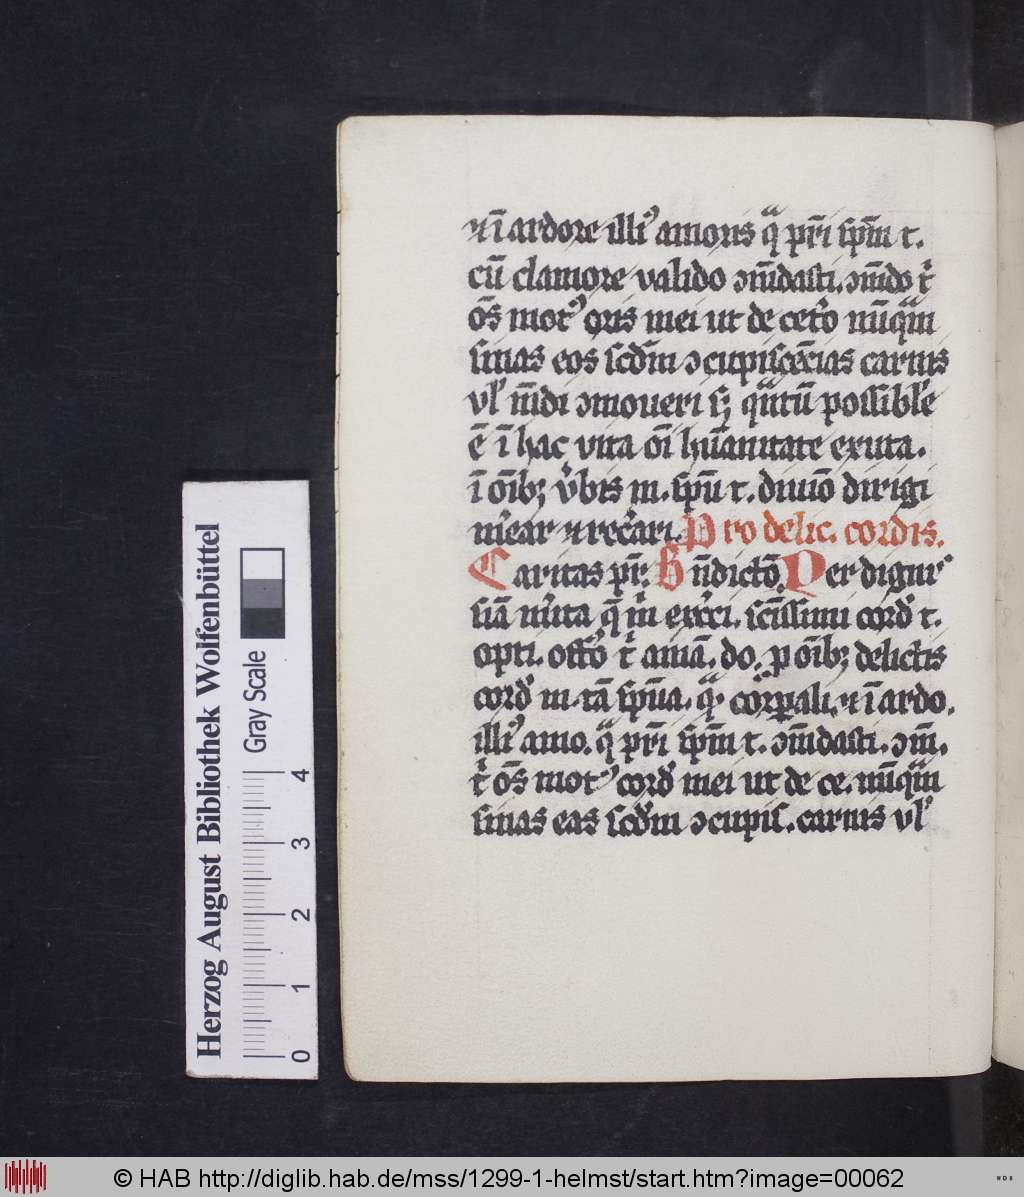 ⁊ ī ardore illiꝰ amoris qͣ pr̄i sp̄m t.
cū clamore valido ɔm̄dasti. ɔm̄do
os̄ motꝰ oris mei ut de cet̾o nūqͣm
sinas eos scd̄m ɔcupisce̅cias carnis
vl̾ mu̅di ɔmoueri sꝫ qͣntū possibile
ē ī hac vita oī hūanitate exuta.
ī oīb; v̾bis m. sp̄u t. diuīo dirigi
m̾ear ⁊ rec̾ari. Pro delic. cordis.
Caritas pr̄. Bn̄dictō. Per digniſ
siā mi̅ta q̄ exc̾ci. sc̄issimi cord̾ t.
opti. offō amā. do. p oīb; delictis
cord̾ m. tā sp̄ua. qͣ corꝑali. ⁊ ī ardo.
illiꝰ amo. qͣ pr̄i sp̄m t. ɔm̄dasti. ɔm̄.
os̄ motꝰ cord̾ mei ut de ce. nūqͣm
sinas eas scd̄m ɔcupis. carnis vl̾
Herzog August Bibliothek Wolfenbüttel
Gray Scale
0 1 2 3 4
© HAB http://diglib.hab.de/mss/1299-1-helmst/start.htm?image=00062